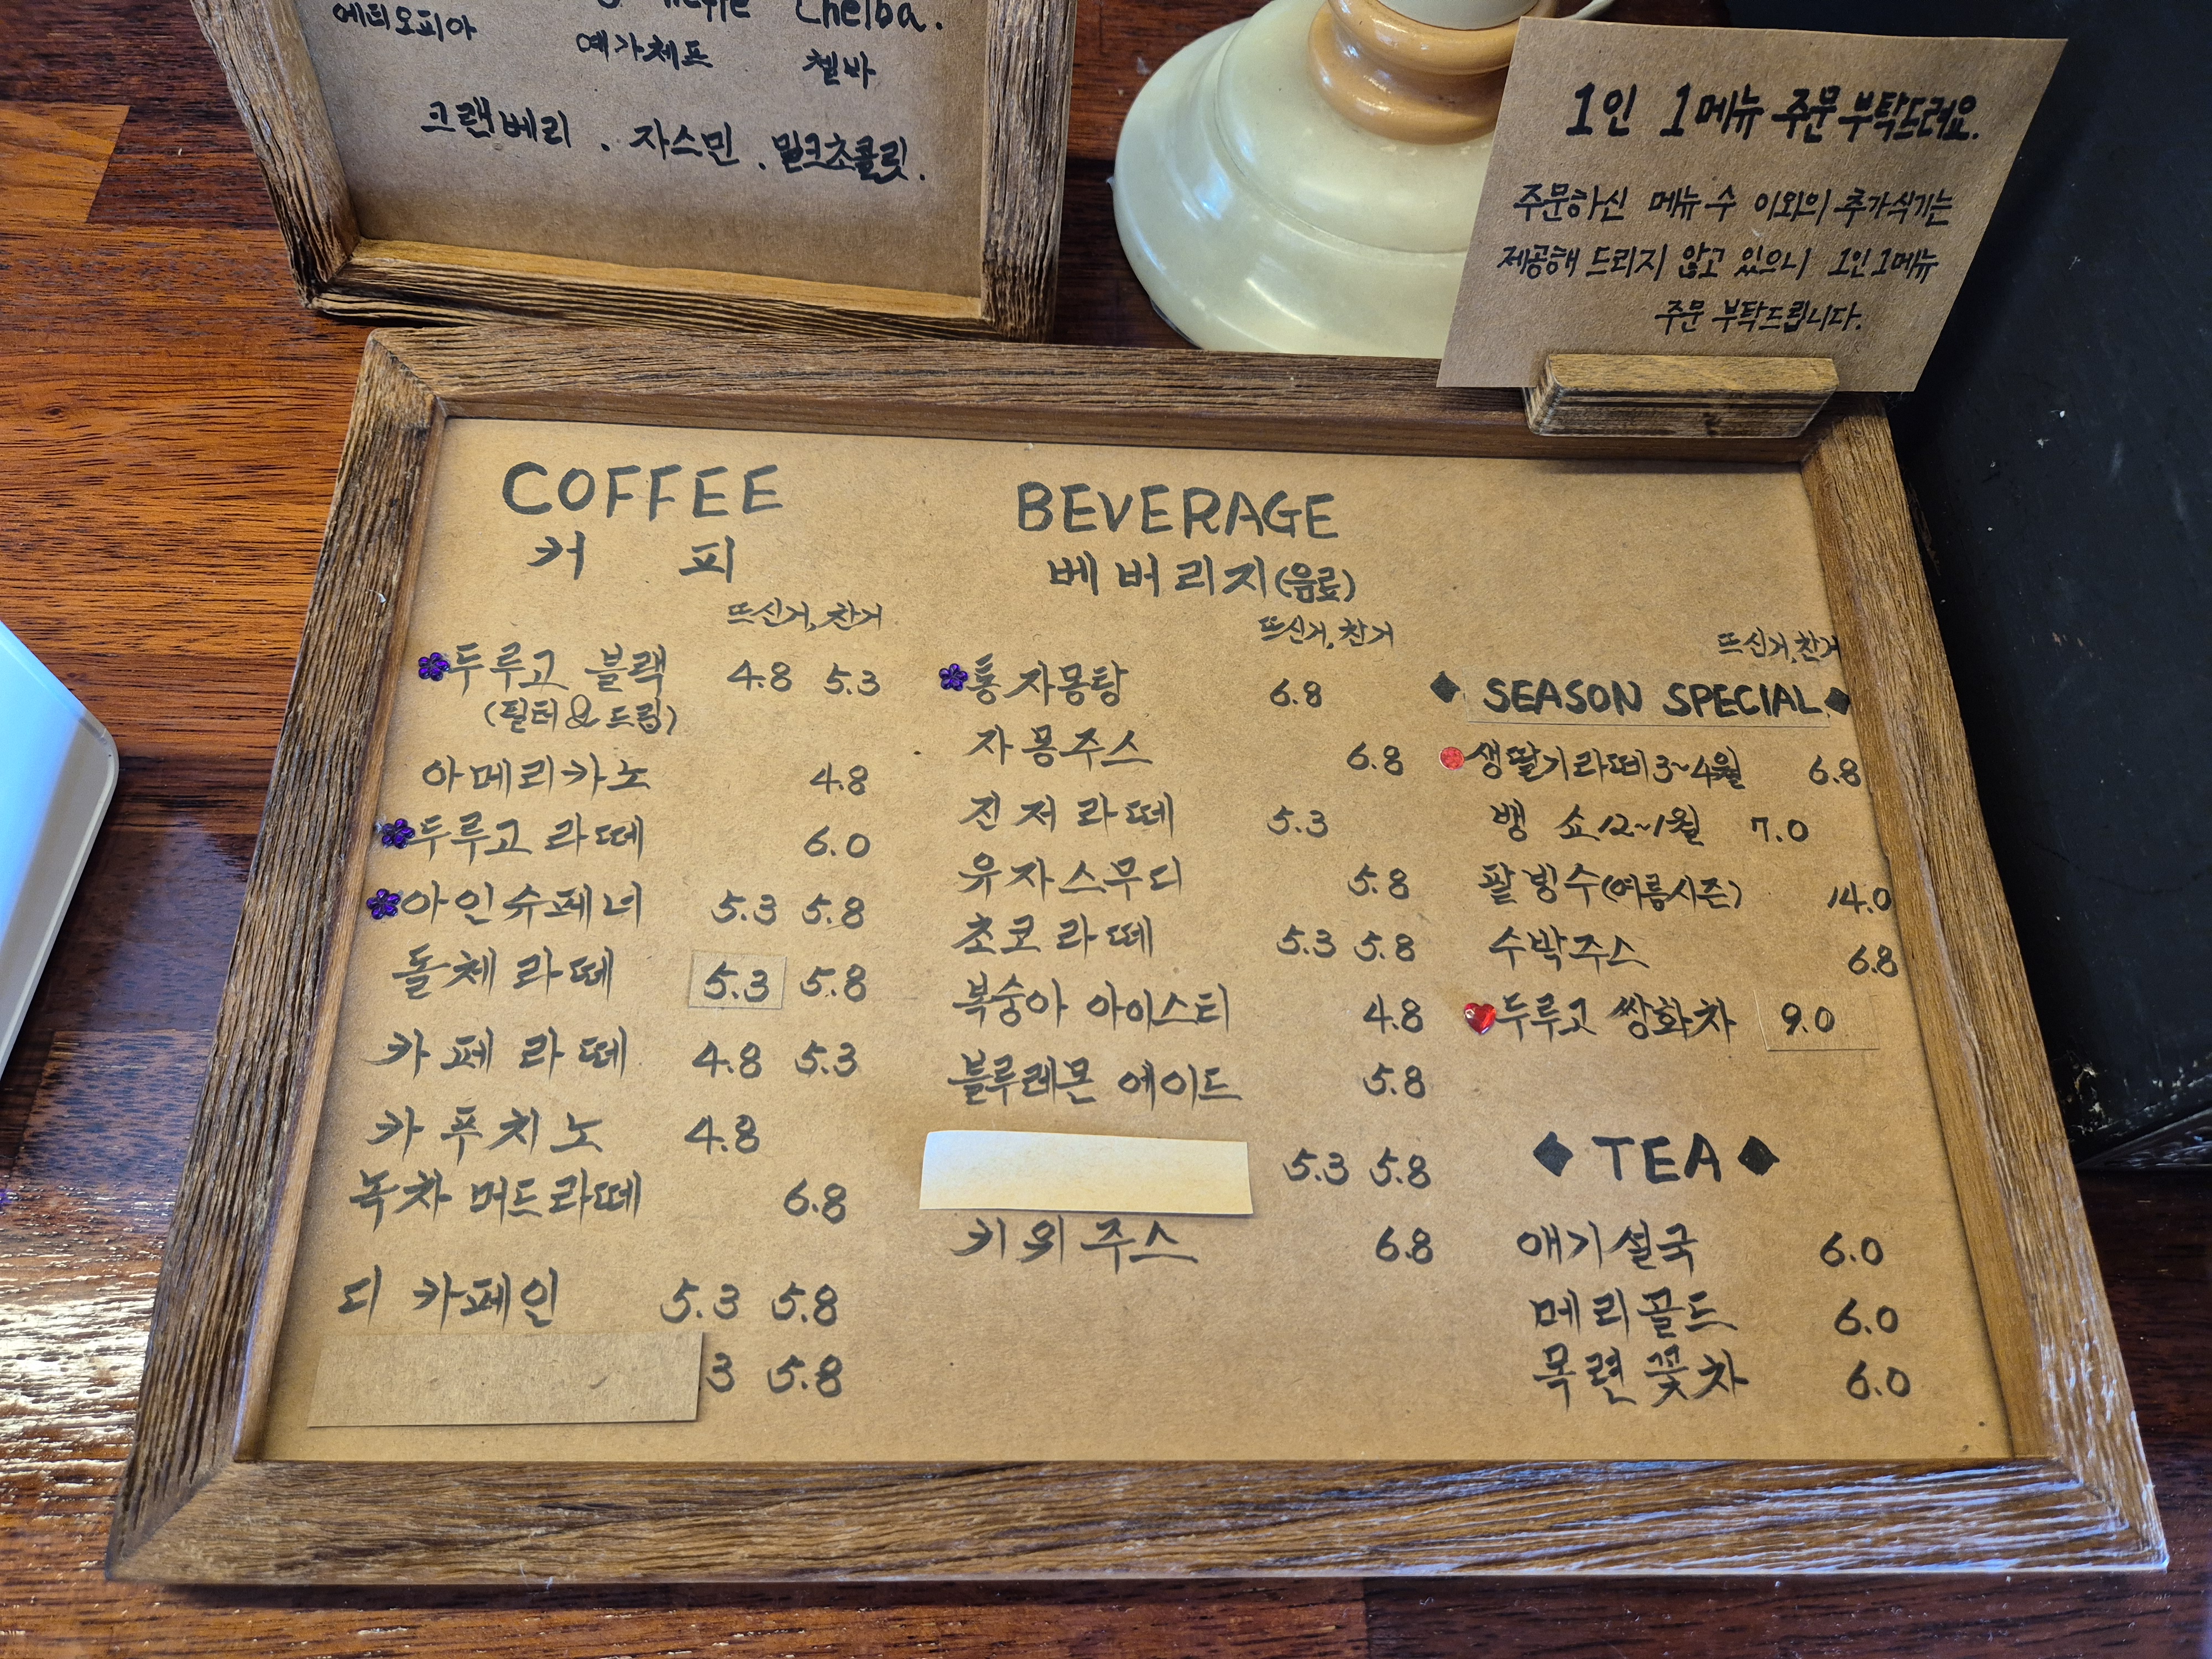 Chelba.
에티오피아 예가체프 첼바
크랜베리 . 자스민 . 밀크초콜릿.
1인 1메뉴 주문 부탁드려요.
주문하신 메뉴 수 이외의 추가식기는
제공해 드리지 않고 있으니 1인 1메뉴
주문 부탁드립니다.
COFFEE
커 피
뜨신거, 찬거
두루고 블랙 4.8 5.3
(필터&드립)
아메리카노 4.8
두루고 라떼 6.0
아인슈페너 5.3 5.8
돌체 라떼 5.3 5.8
카페 라떼 4.8 5.3
카푸치노 4.8
녹차 머드라떼 6.8
디 카페인 5.3 5.8
3 5.8
BEVERAGE
베버리지(음료)
뜨신거, 찬거
통 자몽탕 6.8
자몽주스 6.8
진저라떼 5.3
유자스무디 5.8
초코라떼 5.3 5.8
복숭아 아이스티 4.8
블루레몬 에이드 5.8
5.3 5.8
키위주스 6.8
뜨신거, 찬거
◆ SEASON SPECIAL ◆
생딸기라떼 3~4월 6.8
뱅 쇼 12~1월 7.0
팥빙수(여름시즌) 14.0
수박주스 6.8
두루고 쌍화차 9.0
◆ TEA ◆
애기설국 6.0
메리골드 6.0
목련꽃차 6.0